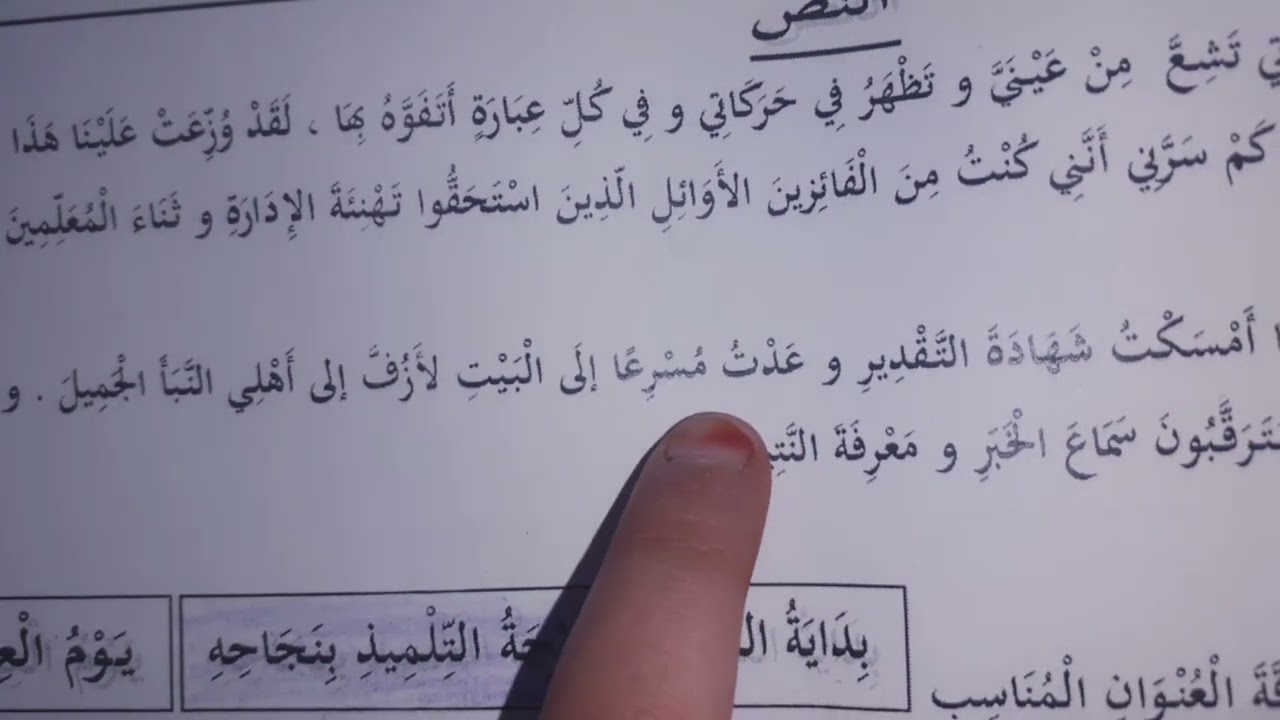 النص
تَشِعَّ مِنْ عَيْنَيَّ و تَظْهَرُ فِي حَرَكَاتِي و فِي كُلِّ عِبَارَةٍ أَتَفَوَّهُ بِهَا ، لَقَدْ وُزِّعَتْ عَلَيْنَا هَذَا
كَمْ سَرَّنِي أَنَّنِي كُنْتُ مِنَ الْفَائِزِينَ الأَوَائِلِ الّذِينَ اسْتَحَقُّوا تَهْنِئَةَ الإِدَارَةِ و ثَنَاءَ الْمُعَلِّمِينَ
أَمْسَكْتُ شَهَادَةَ التَّقْدِيرِ و عَدْتُ مُسْرِعًا إلَى الْبَيْتِ لأَزُفَّ إلى أَهْلِي النَّبَأَ الْجَمِيلَ . و
سَمَاعَ الْخَبَرِ و مَعْرِفَةَ
الْعُنْوَانِ الْمُنَاسِبِ
بِدَايَةُ التِّلْمِيذِ بِنَجَاحِهِ
يَوْمُ